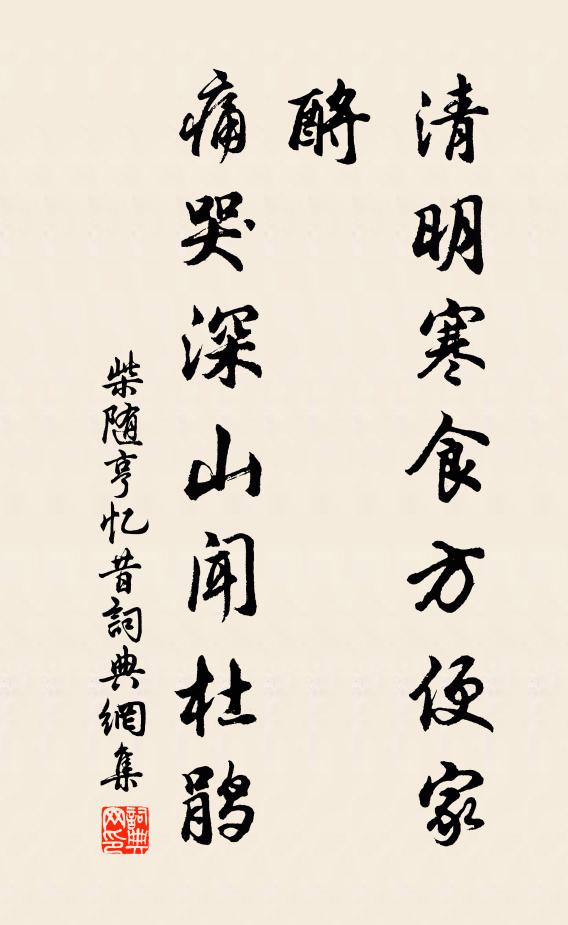 清明寒食方便家
酹
痛哭深山闻杜鹃
柴随亨忆昔詞典網集
詞典
网印